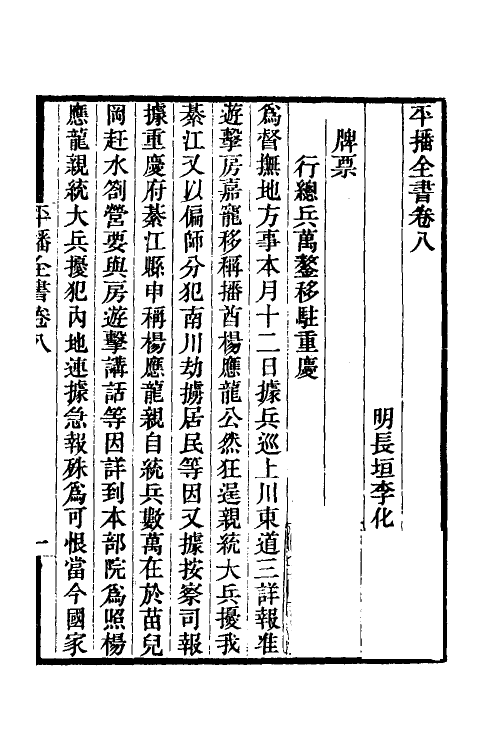 平播全書卷八
明長垣李化
牌票
行總兵萬鏊移駐重慶
爲督撫地方事本月十二日據兵巡上川東道三詳報准
遊擊房嘉寵移稱播酋楊應龍公然狂逞親統大兵擾我
綦江又以偏師分犯南川劫擄居民等因又據按察司報
據重慶府綦江縣申稱楊應龍親自統兵數萬在於苗兒
岡赶水劄營要與房遊擊講話等因詳到本部院爲照楊
應龍親統大兵擾犯內地連據急報殊爲可恨當今國家
平播全書卷八
一